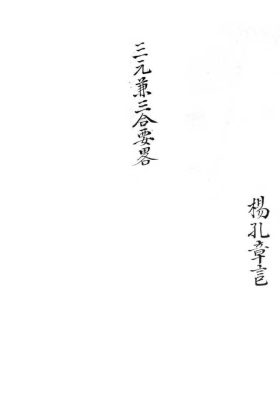 三元兼三合要畧
楊孔章言